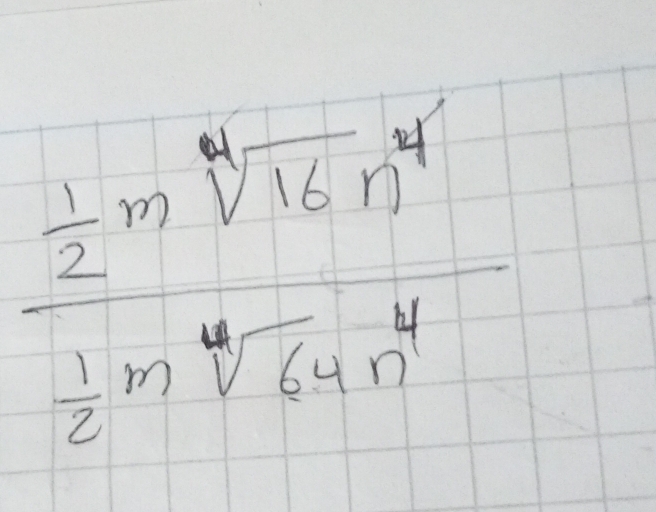 1/2 m ∜16 n⁴
1/2 m ∜64 n⁴